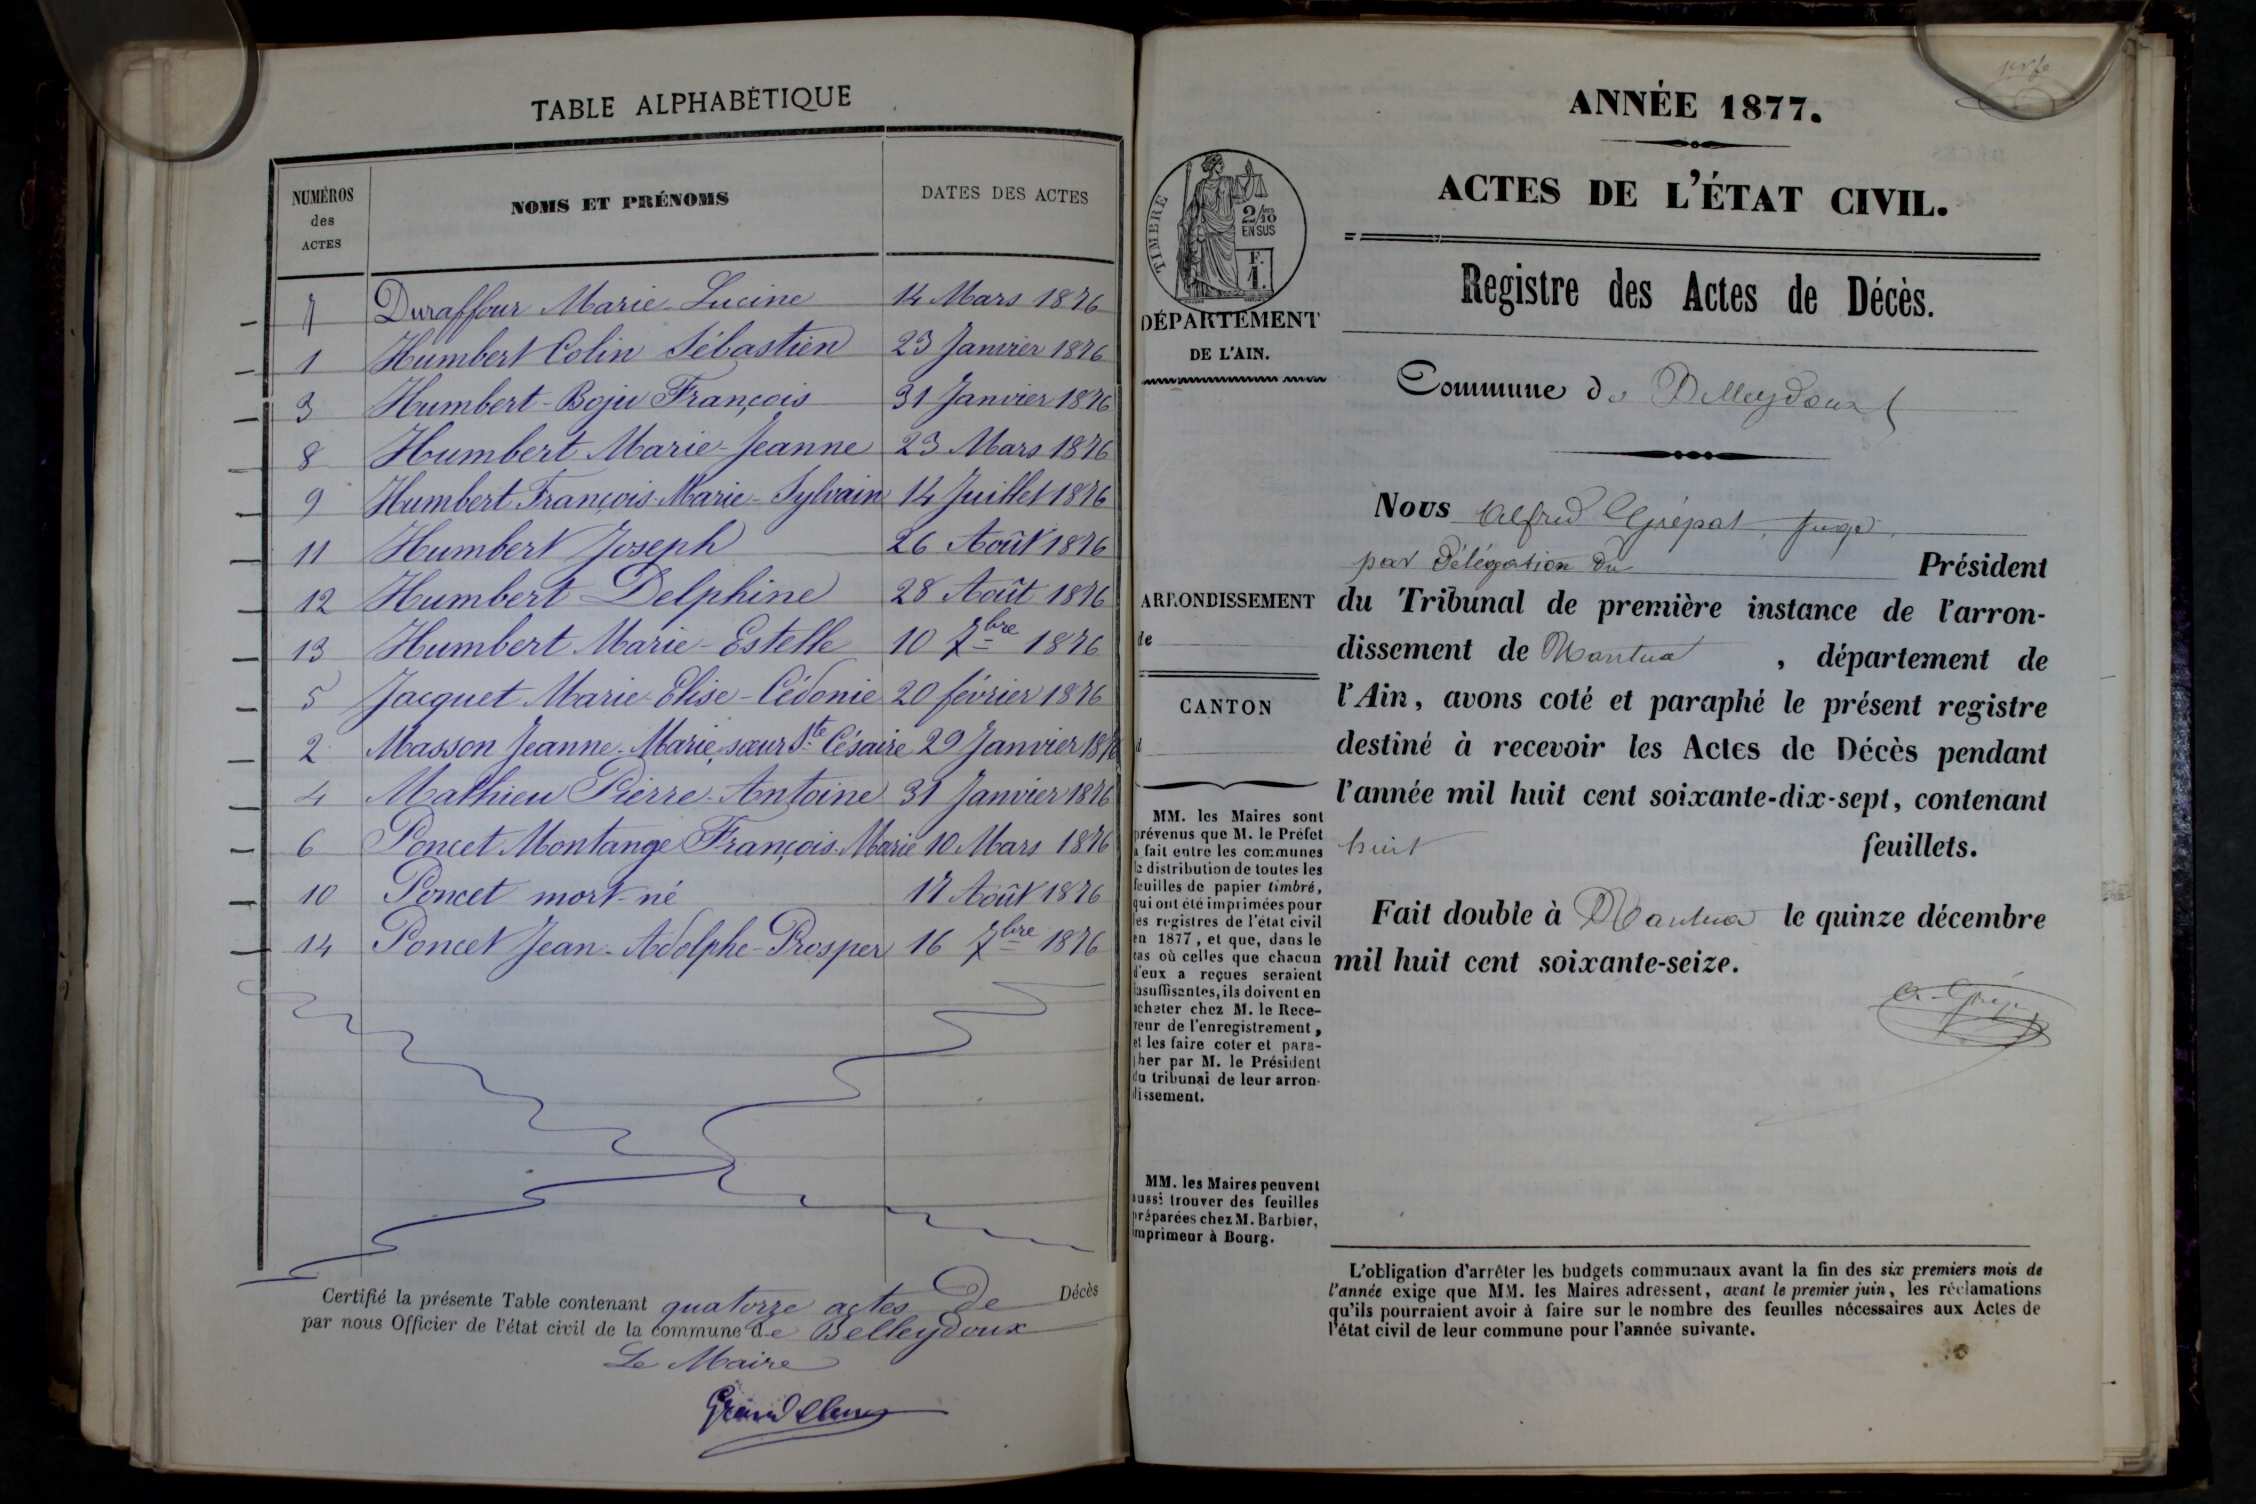 TABLE ALPHABÉTIQUE
NUMÉROS des ACTES
NOMS ET PRÉNOMS
DATES DES ACTES
7 Duraffour Marie-Lucine 14 Mars 1876
1 Humbert Colin Sébastien 23 Janvier 1876
3 Humbert-Boju François 31 Janvier 1876
8 Humbert Marie-Jeanne 23 Mars 1876
9 Humbert François-Marie-Sylvain 14 Juillet 1876
11 Humbert Joseph 26 Août 1876
12 Humbert Delphine 28 Août 1876
13 Humbert Marie-Estelle 10 7bre 1876
5 Jacquet Marie-Elise-Cédonie 20 février 1876
2 Masson Jeanne-Marie, sœur Ste Césaire 29 Janvier 1876
4 Mathieu Pierre-Antoine 31 Janvier 1876
6 Poncet Montange François-Marie 10 Mars 1876
10 Poncet mort-né 17 Août 1876
14 Poncet Jean-Adolphe-Prosper 16 7bre 1876
Certifié la présente Table contenant quatorze actes de Décès
par nous Officier de l'état civil de la commune de Belleydoux
Le Maire
ANNÉE 1877.
ACTES DE L'ÉTAT CIVIL.
TIMBRE
2/10 EN SUS
F. 1.
DÉPARTEMENT
DE L'AIN.
Registre des Actes de Décès.
Commune de Belleydoux
Nous Alfred Grépat, Juge,
par délégation du Président
du Tribunal de première instance de l'arron-
dissement de Nantua, département de
l'Ain, avons coté et paraphé le présent registre
destiné à recevoir les Actes de Décès pendant
l'année mil huit cent soixante-dix-sept, contenant
huit feuillets.
Fait double à Nantua le quinze décembre
mil huit cent soixante-seize.
ARRONDISSEMENT
de
CANTON
d
MM. les Maires sont
prévenus que M. le Préfet
a fait entre les communes
la distribution de toutes les
feuilles de papier timbré,
qui ont été imprimées pour
les registres de l'état civil
en 1877, et que, dans le
cas où celles que chacun
d'eux a reçues seraient
insuffisantes, ils doivent en
acheter chez M. le Rece-
veur de l'enregistrement,
et les faire coter et para-
pher par M. le Président
du tribunal de leur arron-
dissement.
MM. les Maires peuvent
aussi trouver des feuilles
préparées chez M. Barbier,
imprimeur à Bourg.
L'obligation d'arrêter les budgets communaux avant la fin des six premiers mois de
l'année exige que MM. les Maires adressent, avant le premier juin, les réclamations
qu'ils pourraient avoir à faire sur le nombre des feuilles nécessaires aux Actes de
l'état civil de leur commune pour l'année suivante.